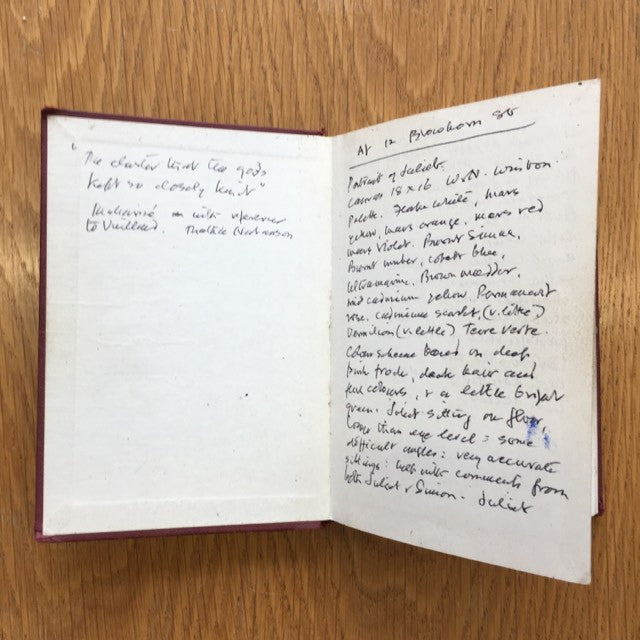 "The cluster that the gods
Kept so closely knit"
with reference
to Vuillard. Thadée Natanson
At 12 Browhorn St
Portrait of Juliet.
Canvas 18 x 16 W&N. Winton.
Palette. Flake white, mars
yellow, mars orange, mars red
mars violet. Burnt Sienna,
Burnt umber, cobalt blue,
Ultramarine, Brown madder,
mid cadmium yellow. Permanent
rose. cadmium scarlet, (v. little)
Vermilion (v. little) Terre verte.
Colour scheme based on deep
pink frock, dark hair and
colours, & a little bright
green. Juliet sitting on floor
lower than eye level: some
difficult angles: very accurate
sittings: help with comments from
both Juliet & Simon. Juliet